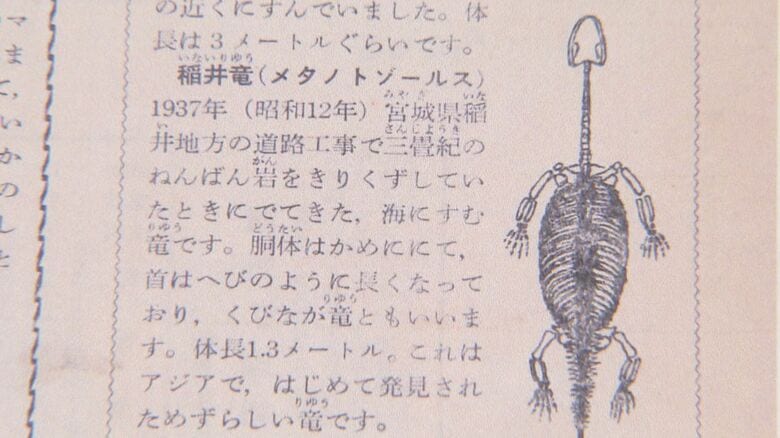 の近くにすんでいました。体
長は3メートルぐらいです。
稲井竜(メタノトゾールス)
1937年(昭和12年)宮城県稲
井地方の道路工事で三畳紀の
ねんばん岩をきりくずしてい
たときにでてきた,海にすむ
竜です。胴体はかめににて,
首はへびのように長くなって
おり,くびなが竜ともいいま
す。体長1.3メートル。これは
アジアで,はじめて発見され
ためずらしい竜です。